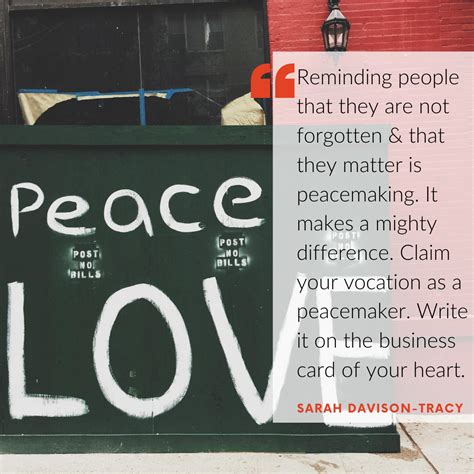 Peace
POST
NO
BILLS
POST
NO
BILLS
LOVE
“
Reminding people
that they are not
forgotten & that
they matter is
peacemaking. It
makes a mighty
difference. Claim
your vocation as a
peacemaker. Write
it on the business
card of your heart.
SARAH DAVISON-TRACY